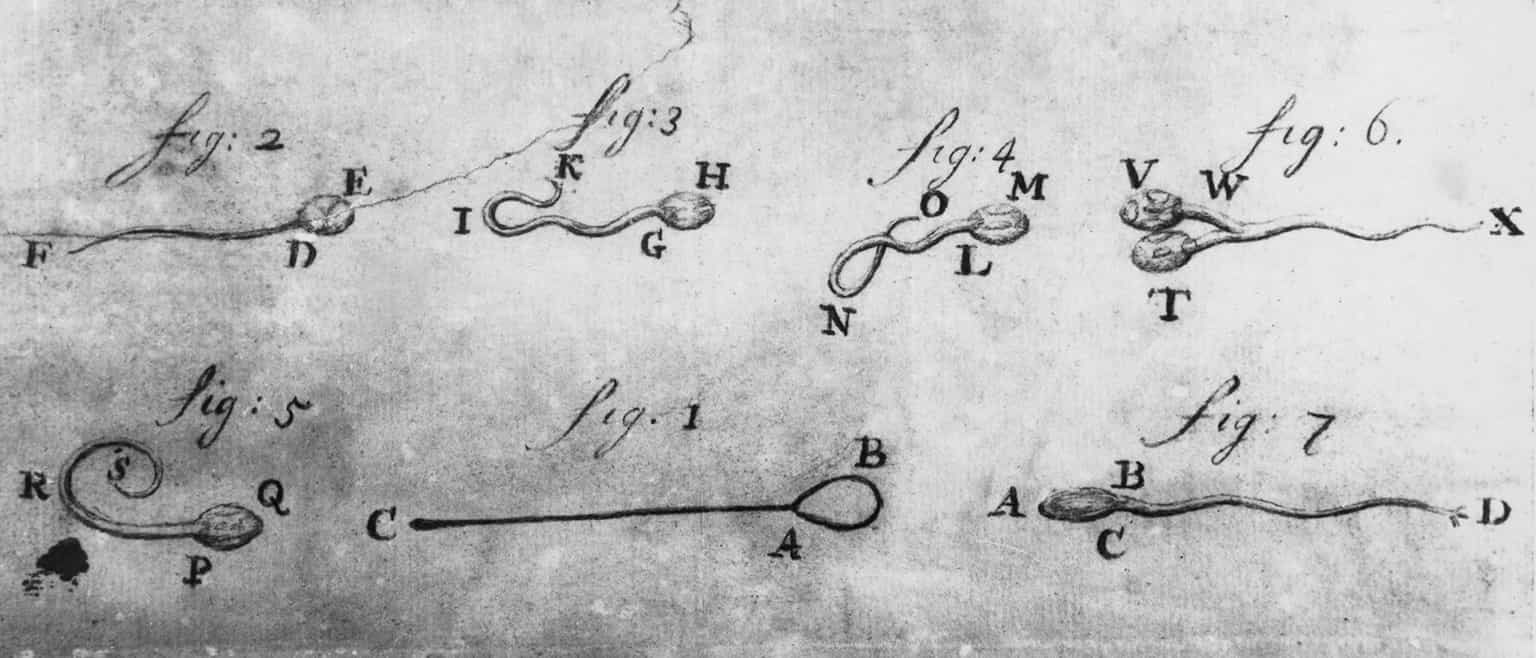 fig: 2
E
F
D
fig: 3
K
I
H
G
fig: 4
O
M
L
N
fig: 6.
V
W
X
T
fig: 5
R
S
Q
P
fig. 1
B
C
A
fig: 7
A
B
C
D